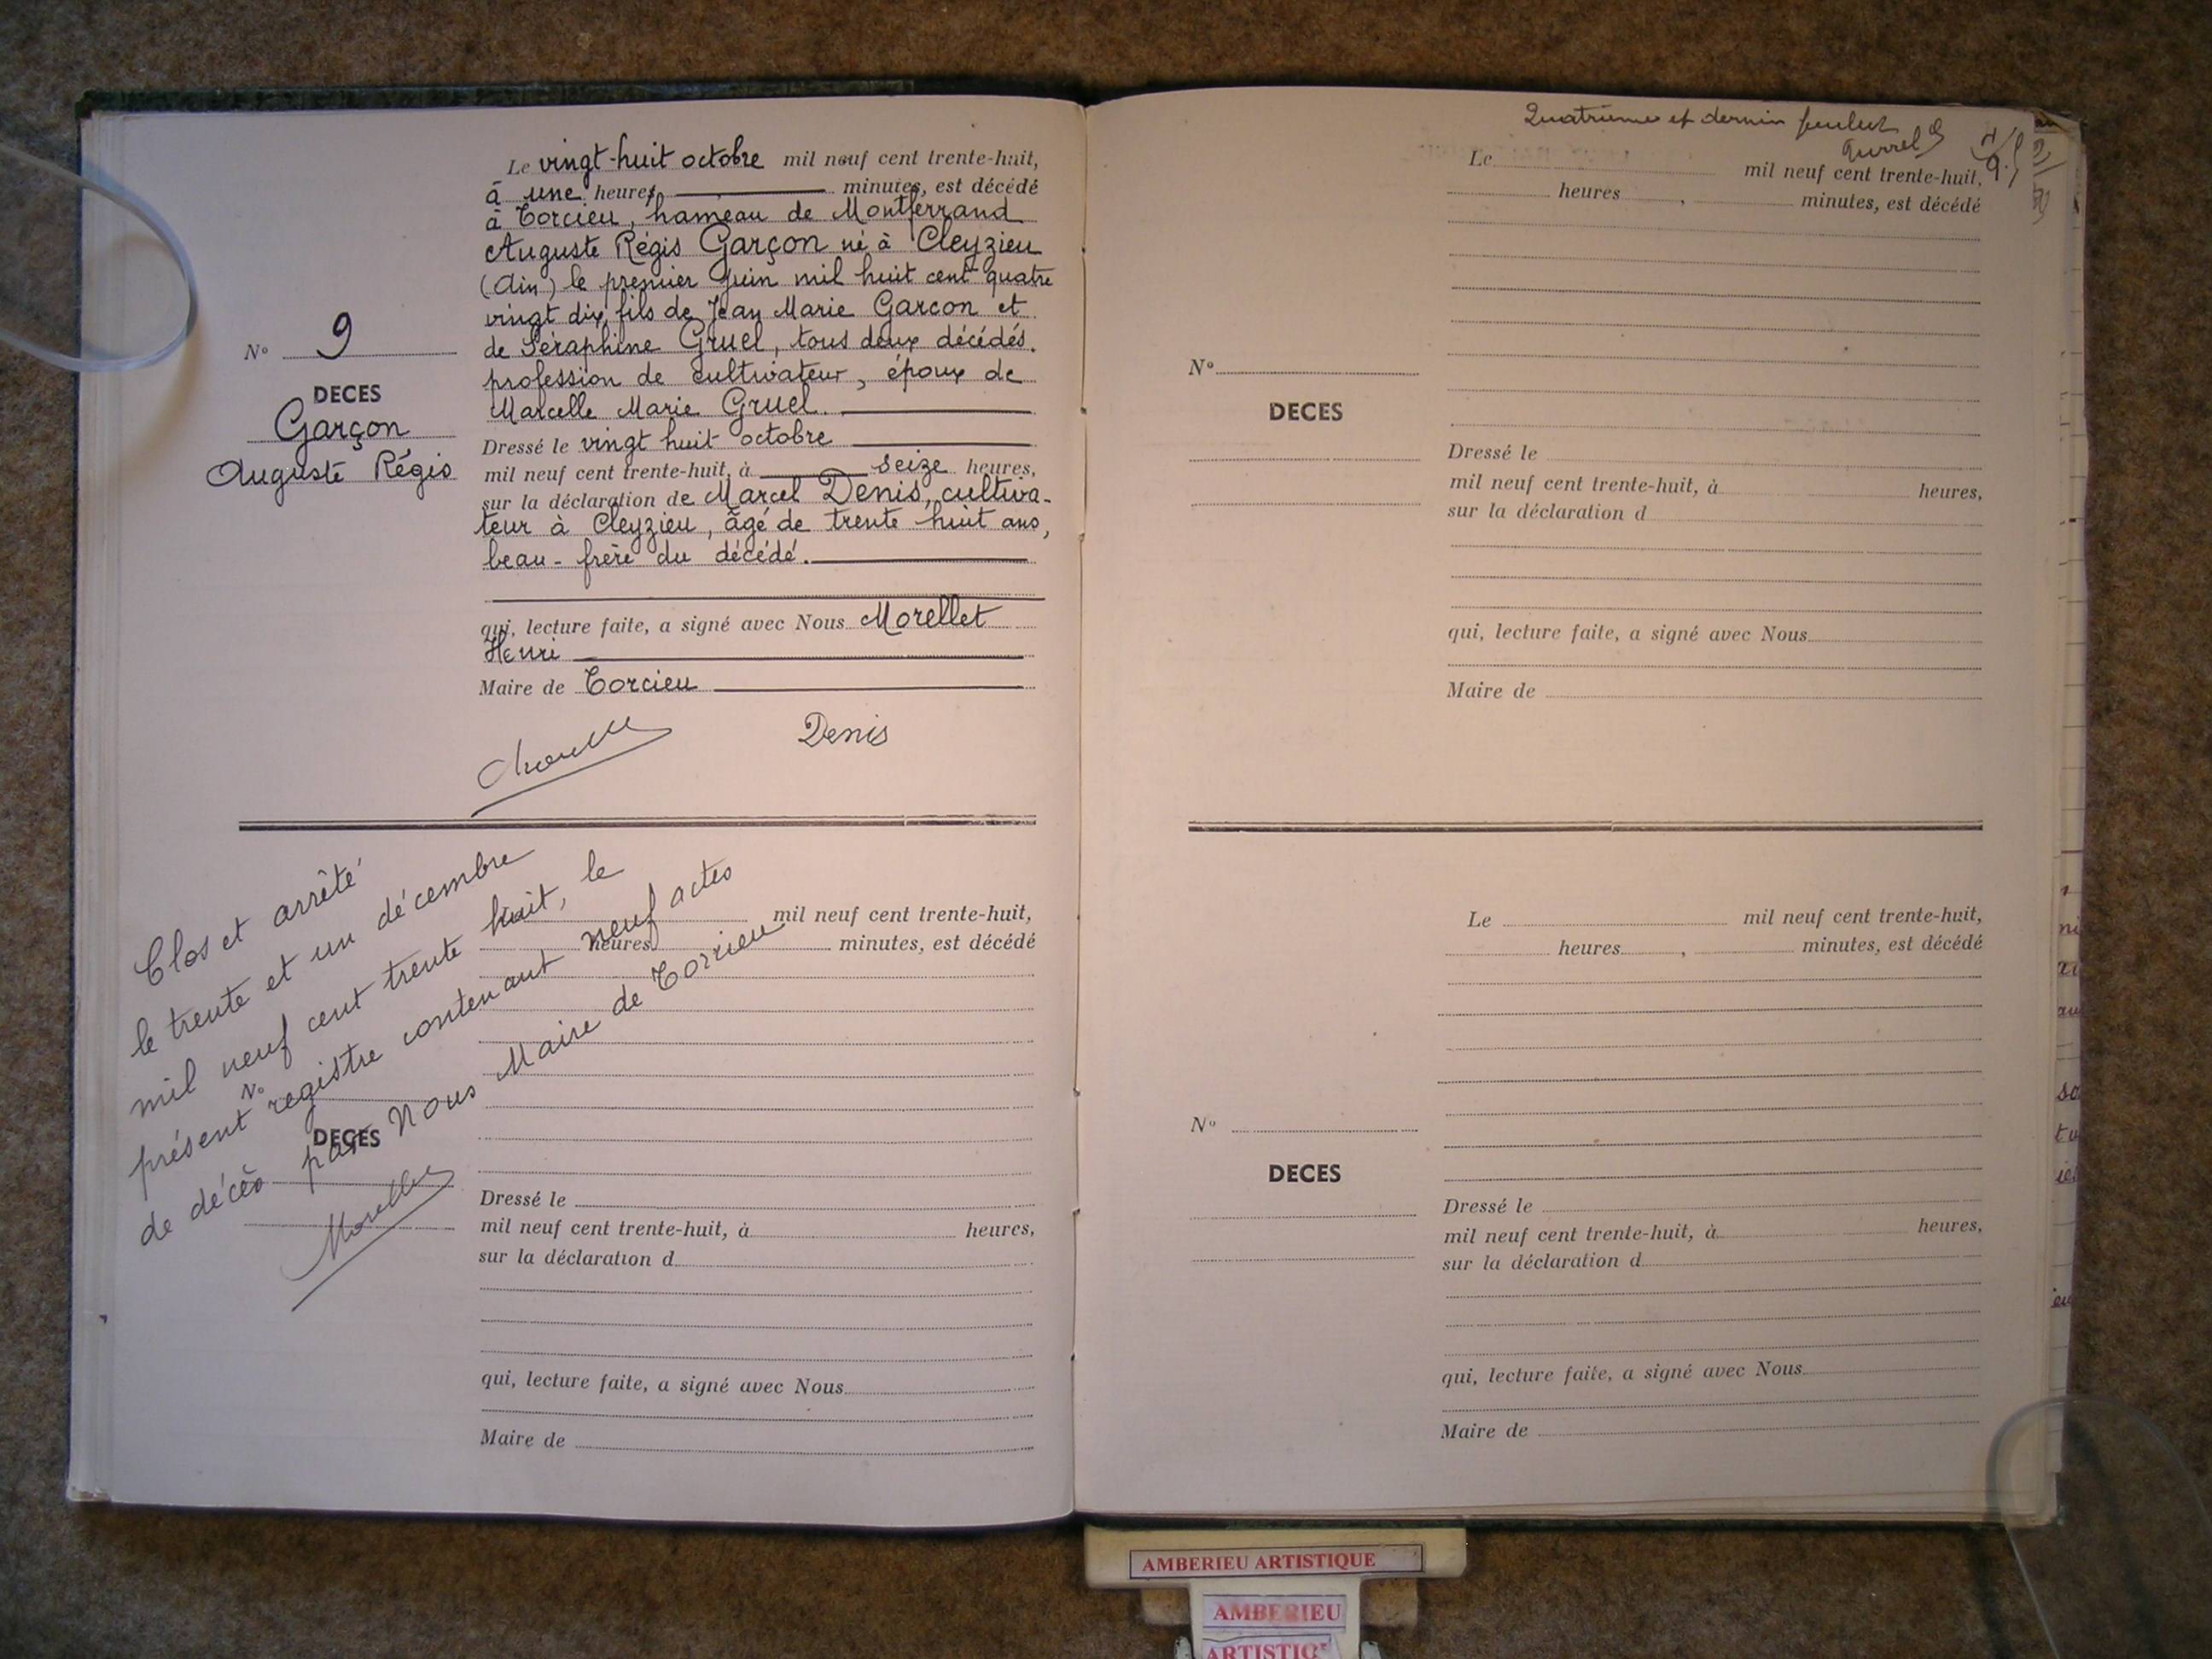 Le vingt-huit octobre mil neuf cent trente-huit,
à une heures, minutes, est décédé
à Torcieu, hameau de Montferrand
Auguste Régis Garçon né à Cleyzieu
(Ain) le premier Juin mil huit cent quatre
vingt dix, fils de Jean Marie Garcon et
de Séraphine Gruel, tous deux décédés.
profession de cultivateur, époux de
Marcelle Marie Gruel.
N° 9
DECES
Garçon
Auguste Régis
Dressé le vingt huit octobre
mil neuf cent trente-huit, à seize heures,
sur la déclaration de Marcel Denis, cultiva-
teur à Cleyzieu, âgé de trente huit ans,
beau-frère du décédé.
qui, lecture faite, a signé avec Nous Morellet
Henri
Maire de Torcieu
Denis
Clos et arrêté
le trente et un décembre
mil neuf cent trente huit, le
présent registre contenant neuf actes
de décès par Nous Maire de Torcieu
Morellet
mil neuf cent trente-huit,
heures minutes, est décédé
N°
DECES
Dressé le
mil neuf cent trente-huit, à heures,
sur la déclaration d
qui, lecture faite, a signé avec Nous
Maire de
Quatrième et dernier feuillet
Le mil neuf cent trente-huit,
heures , minutes, est décédé
N°
DECES
Dressé le
mil neuf cent trente-huit, à heures,
sur la déclaration d
qui, lecture faite, a signé avec Nous
Maire de
Le mil neuf cent trente-huit,
heures , minutes, est décédé
N°
DECES
Dressé le
mil neuf cent trente-huit, à heures,
sur la déclaration d
qui, lecture faite, a signé avec Nous
Maire de
AMBERIEU ARTISTIQUE
AMBERIEU
ARTISTIQ